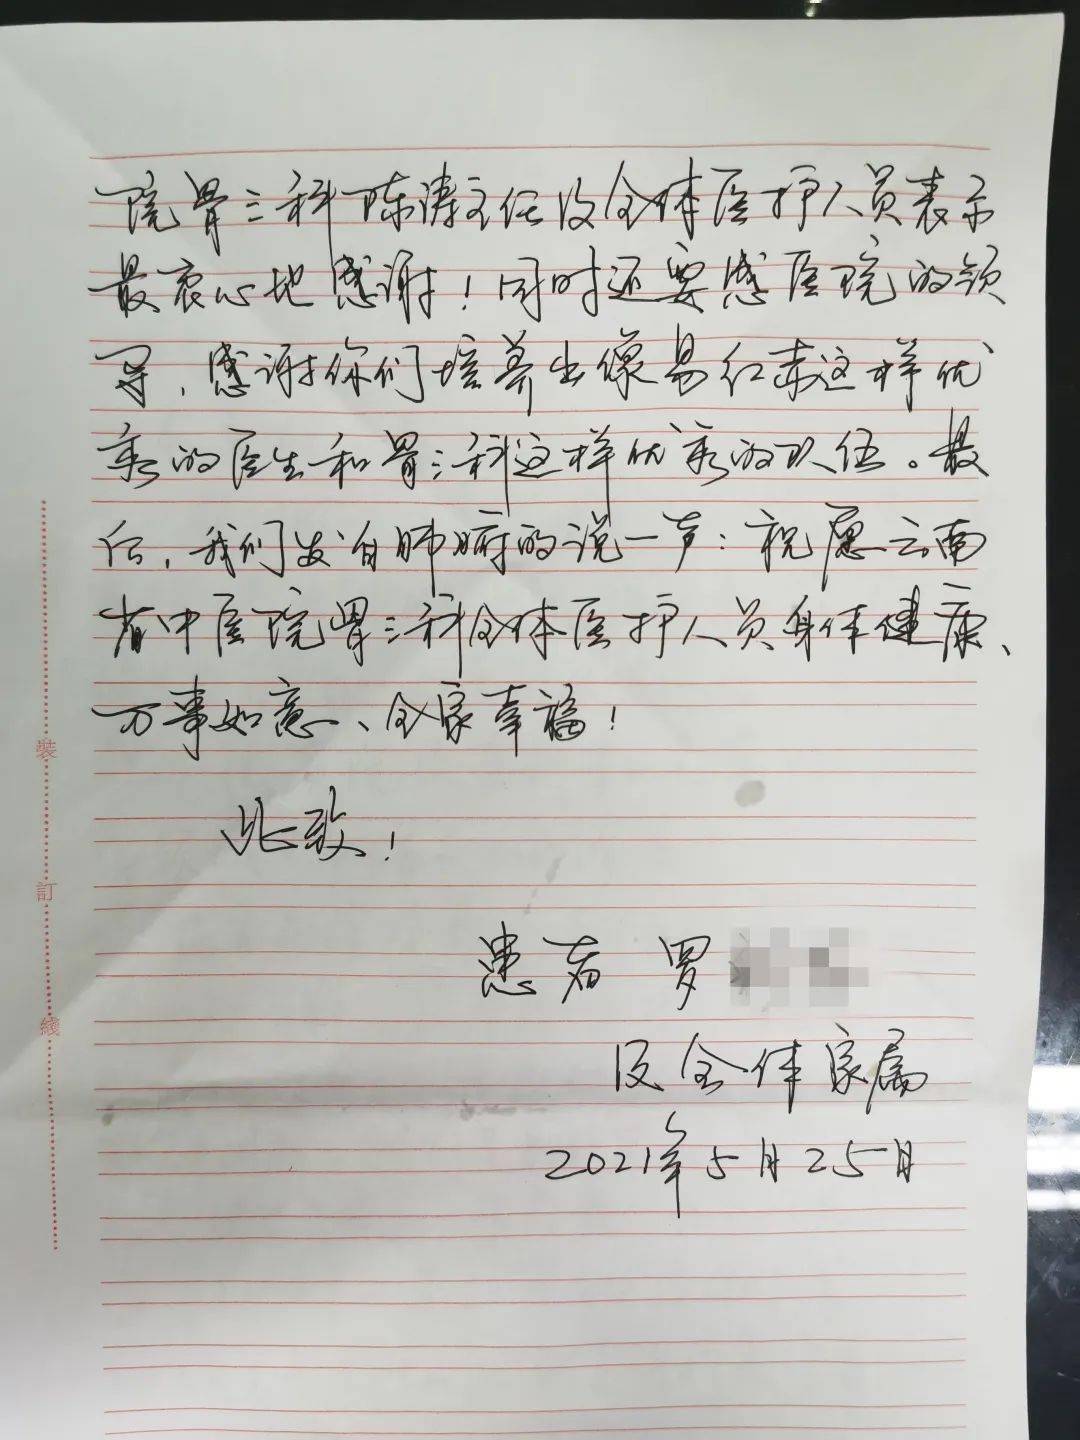 院骨三科陈涛主任及全体医护人员表示
最衷心地感谢！同时还要感医院的领
导，感谢你们培养出像易红赤这样优
秀的医生和骨三科这样优秀的队伍。最
后，我们发自肺腑的说一声：祝愿云南
省中医院骨三科全体医护人员身体健康、
万事如意、全家幸福！
此致！
患者 罗
及全体家属
2021年5月25日
装
訂
綫